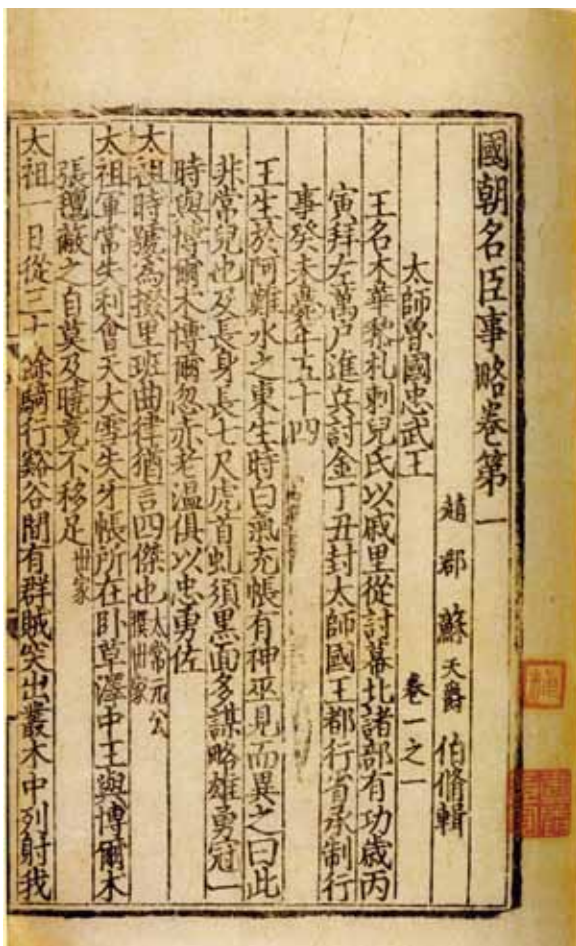 國朝名臣事略卷第一
趙郡蘇天爵伯脩輯
太師魯國忠武王 卷一之一
王名木華黎札剌兒氏以戚里從討幕北諸部有功歳丙
寅拜左萬户進兵討金丁丑封太師國王都行省承制行
事癸未薨年五十四
王生於阿難水之東生時白氣充帳有神巫見而異之曰此
非常兒也及長身長七尺虎首虬須黑面多謀略雄勇冠一
時與博爾木博爾忽赤老温俱以忠勇佐
太祖時號為掇里班曲律猶言四傑也太常元公撰世家
太祖軍嘗失利會天大雪失牙帳所在卧草澤中王與博爾木
張氊蔽之自莫及曉竟不移足世家
太祖一日從三十餘騎行谿谷間有群賊突出叢木中列射我